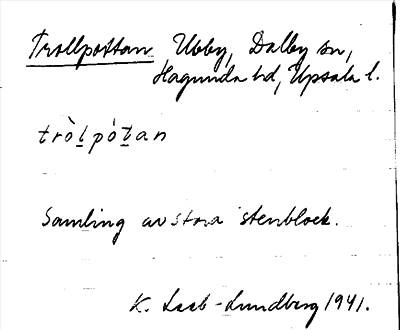 Trollpottan. Ubby, Dalby sn,
Hagunda hd, Upsala l.
tròḻpót̠an
Samling av stora stenblock.
K. Leeb-Lundberg 1941.